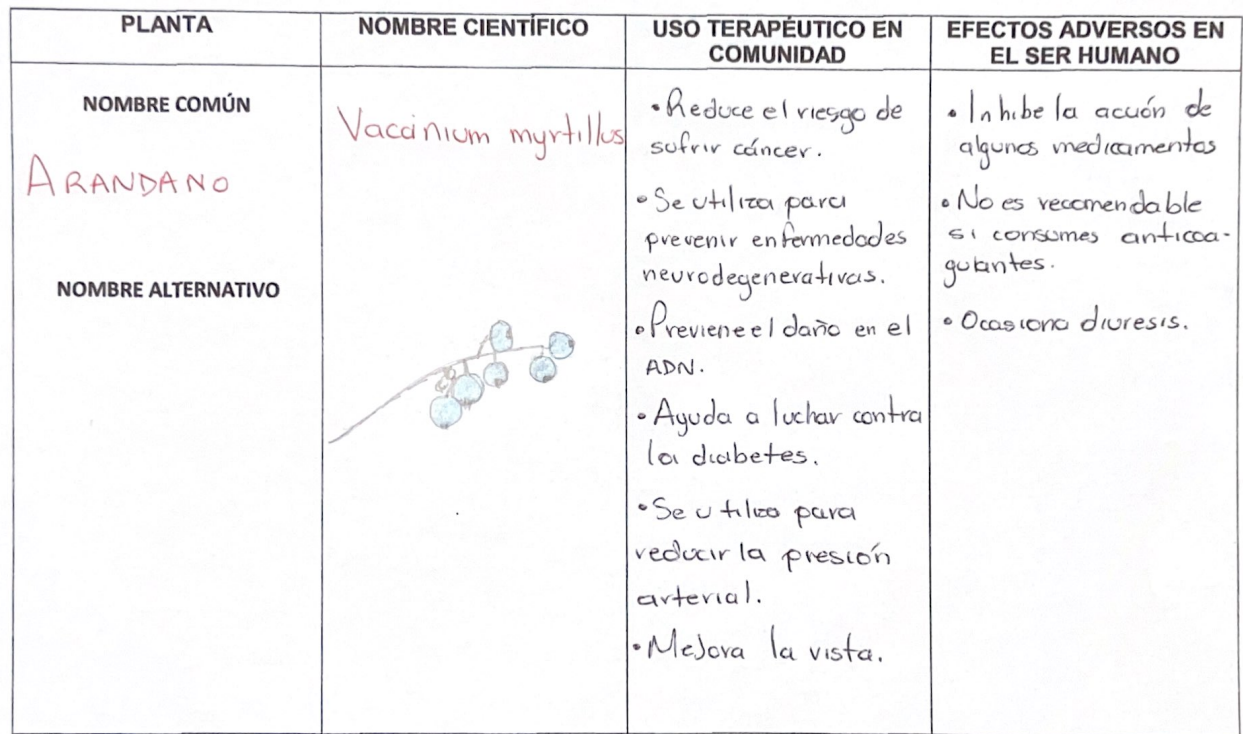 PLANTA
NOMBRE CIENTÍFICO
USO TERAPÉUTICO EN
COMUNIDAD
EFECTOS ADVERSOS EN
EL SER HUMANO
NOMBRE COMÚN
ARANDANO
NOMBRE ALTERNATIVO
Vaccinium myrtillus
• Reduce el riesgo de
sufrir cáncer.
• Se utiliza para
prevenir enfermedades
neurodegenerativas.
• Previene el daño en el
ADN.
• Ayuda a luchar contra
la diabetes.
• Se utiliza para
reducir la presión
arterial.
• Mejora la vista.
• Inhibe la acción de
algunos medicamentos
• No es recomendable
si consumes anticoa-
gulantes.
• Ocasiona diuresis.